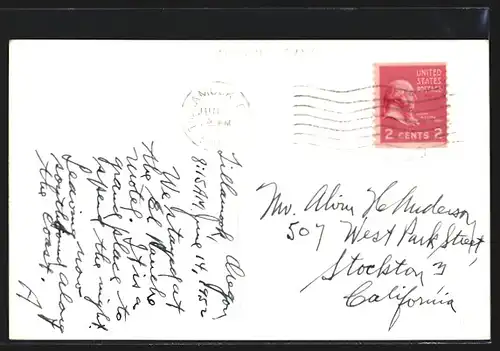 UNITED
STATES
POSTAGE
2 CENTS 2
Tillamook, Oregon
8:15 AM, June 14, 1952
We stayed at
the El Rancho
motel. It is a
grand place to
spend the night.
Leaving now
south bound along
the coast.
A
Mr. Alvin H. Anderson,
507 West Park Street,
Stockton 3
California